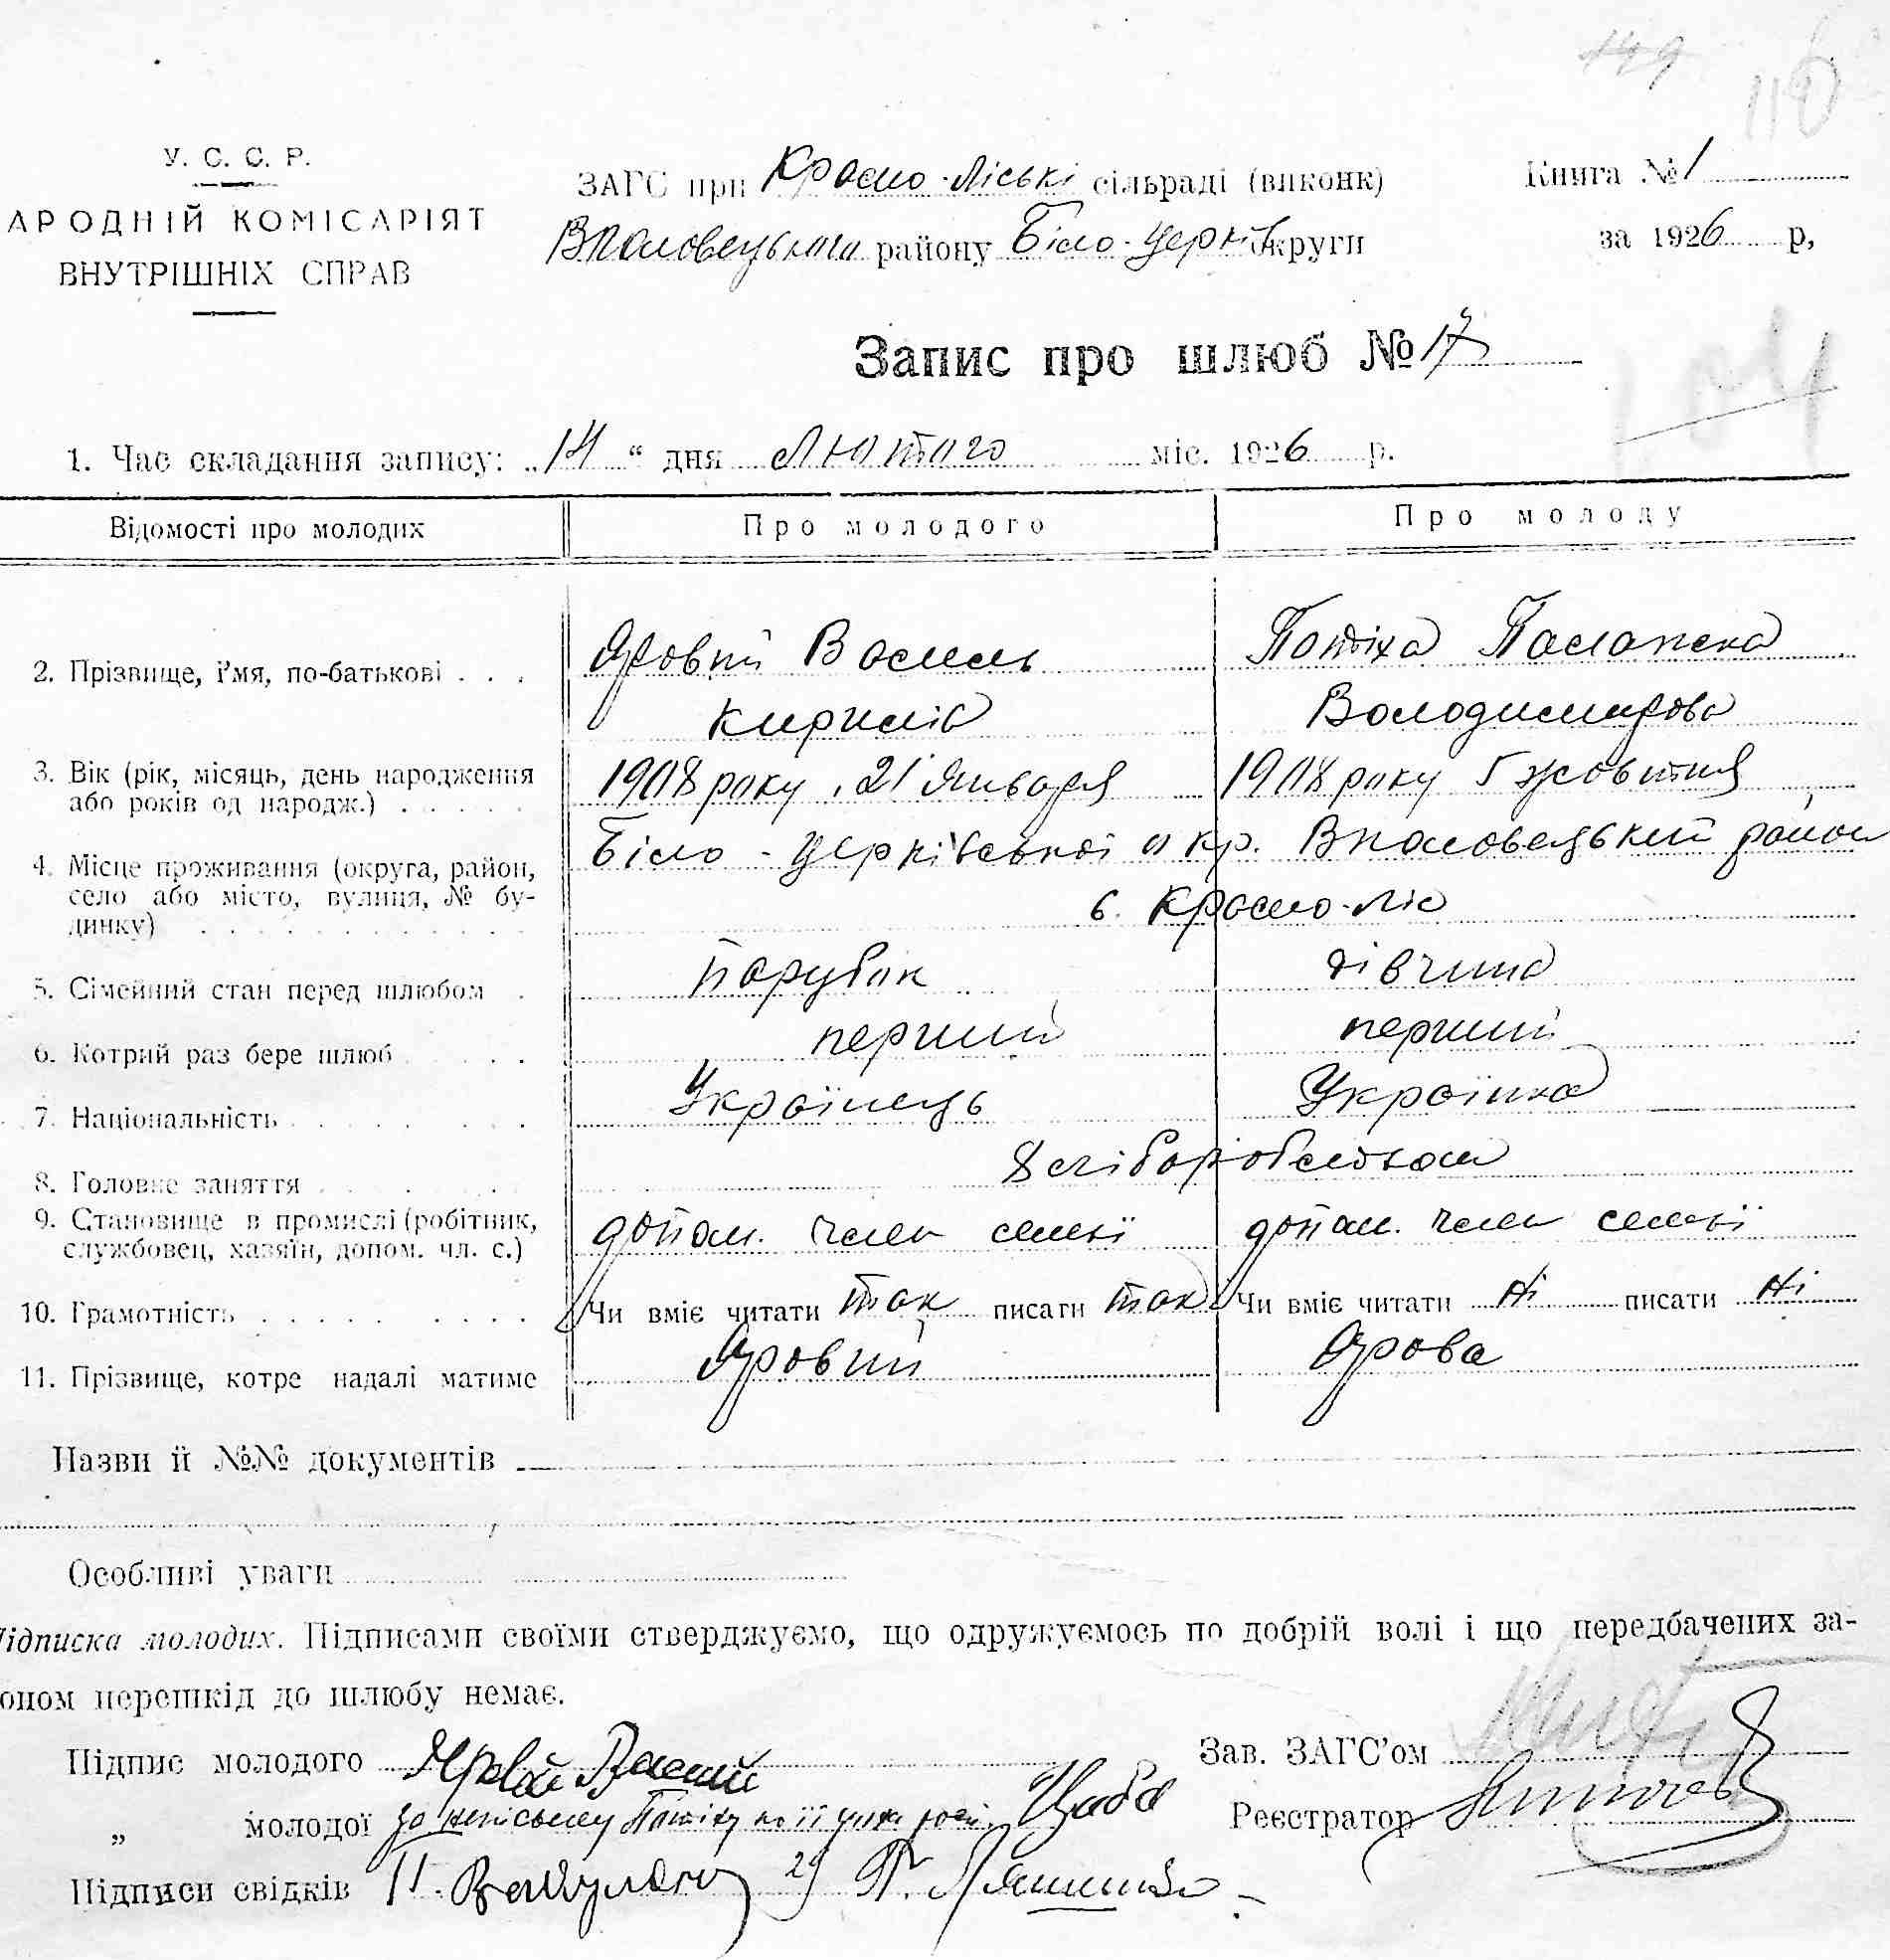 149
116
У. С. С. Р.
АРОДНІЙ КОМІСАРІЯТ
ВНУТРІШНІХ СПРАВ
ЗАГС при Красно-Ліські сільраді (виконк)
району Біло-Церків округи
Книга № 1
за 1926 р,
Запис про шлюб № 17
104
1. Час складання запису: „14“ дня Лютого міс. 1926 р.
Відомості про молодих
Про молодого
Про молоду
2. Прізвище, і'мя, по-батькові . . .
Яровий Василь
Кирилів
Потіха Палажка
Володимирова
3. Вік (рік, місяць, день народження
або років од народж.) . . . . .
1908 року, 21 Января
1908 року 5 жовтня
4. Місце проживання (округа, район,
село або місто, вулиця, № бу-
динку) . . . . . . . . . . .
Біло-Церківської окр. район
с. Красно-Ліс
5. Сімейний стан перед шлюбом .
Парубок
дівчина
6. Котрий раз бере шлюб . . . .
перший
перший
7. Національність . . . . . . . .
Українець
Українка
8. Головне заняття . . . . . . .
Хліборобством
9. Становище в промислі (робітник,
службовец, хазяїн, допом. чл. с.)
допом. член семьї
допом. член семьї
10. Грамотність . . . . . . . . .
Чи вміє читати так писати так
Чи вміє читати Ні писати Ні
11. Прізвище, котре надалі матиме
Яровий
Ярова
Назви й №№ документів
Особливі уваги
Підписка молодих. Підписами своїми стверджуємо, що одружуємось по добрій волі і що передбачених за-
оном перешкід до шлюбу немає.
Підпис молодого Яровой Василй
Зав. ЗАГС'ом
„ молодої за неписьмену Потіху по її
Реєстратор
Підписи свідків П. 2) П.